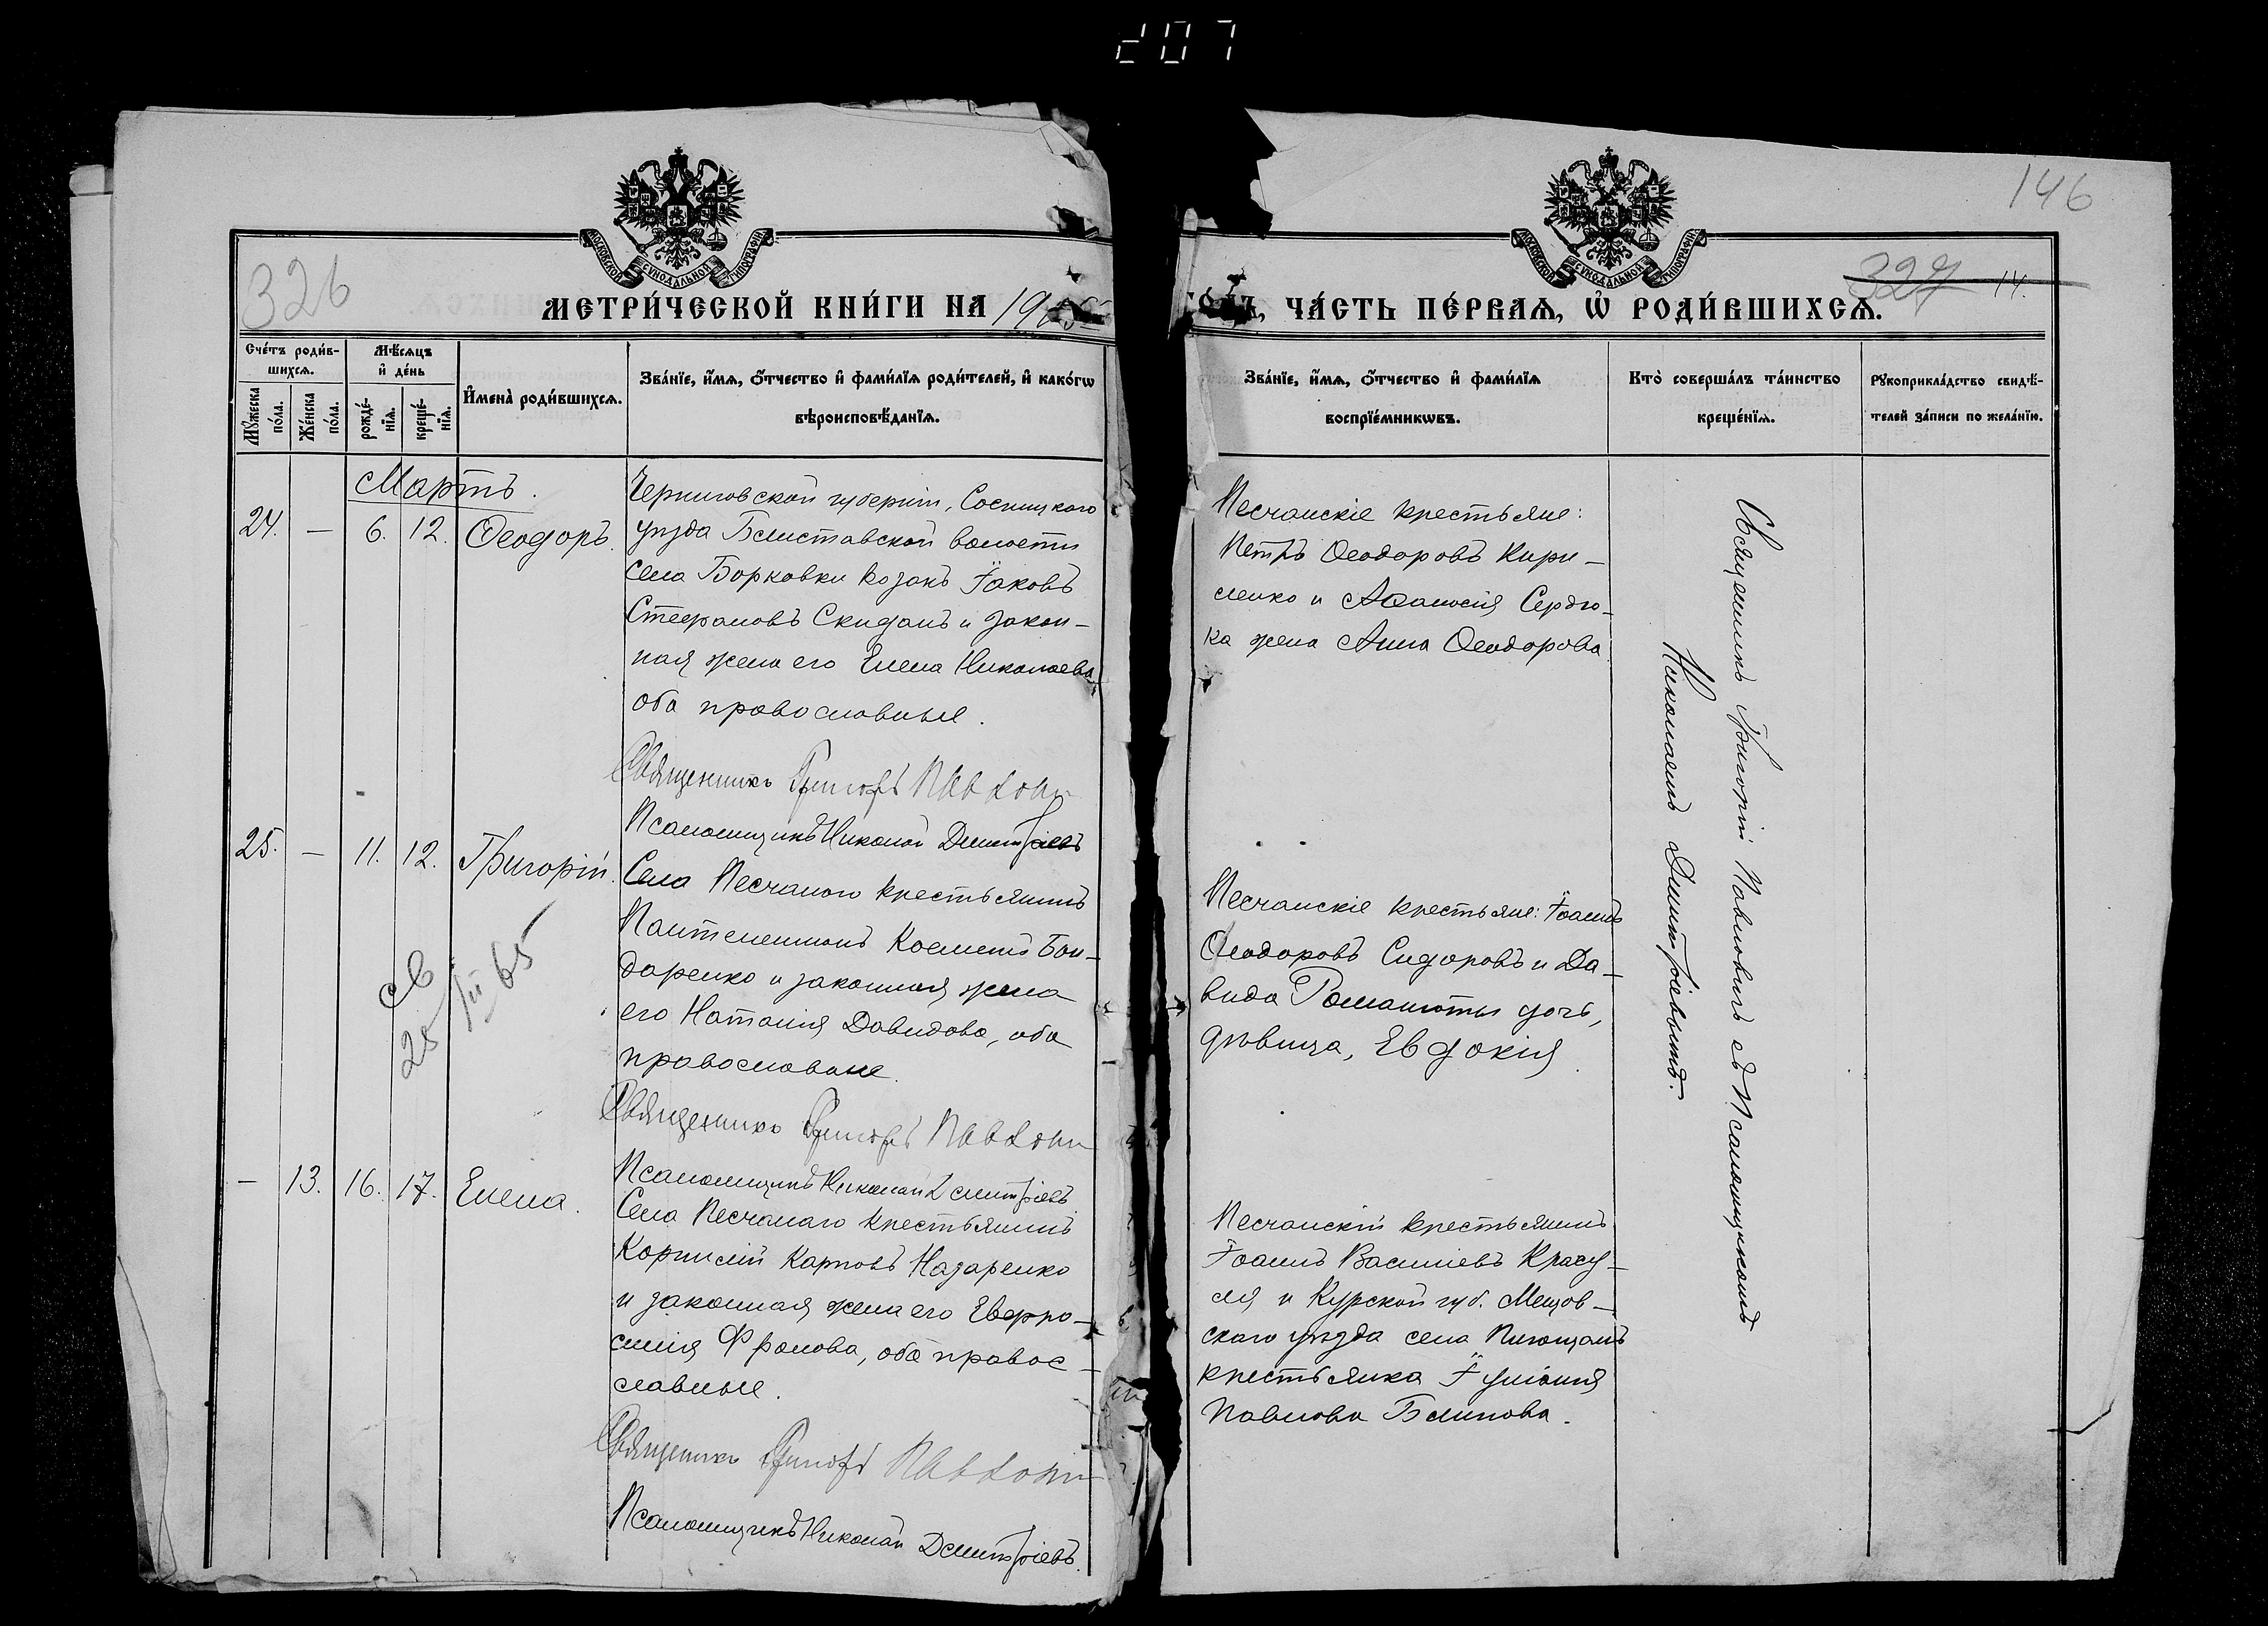 207
146
326
327 14.
МОСКОВСКОЙ СУНОДАЛЬНОЙ ТИПОГРАФІИ
МОСКОВСКОЙ СУНОДАЛЬНОЙ ТИПОГРАФІИ
МЕТРИ́ЧЕСКОЙ КНИ́ГИ НА 190
ЧА́СТЬ ПЕ́РВАѦ, Ѡ РОДИ́ВШИХСѦ.
Сче́тъ роди́в-
шихсѧ.
Мѣ́сѧцъ
и҆ де́нь
Мꙋ́жеска по́ла.
Же́нска по́ла.
рожде́-
нїѧ.
креще́-
нїѧ.
И҆мена̀ роди́вшихсѧ.
Зва́нїе, и҆́мѧ, ѻ҆́тчество и҆ фами́лїѧ роди́телей, и҆ како́гѡ
вѣроисповѣ́данїѧ.
Зва́нїе, и҆́мѧ, ѻ҆́тчество и҆ фами́лїѧ
воспрїе́мникѡвъ.
Кто̀ соверша́лъ та́инство
креще́нїѧ.
Рꙋкоприкла́дство свидѣ́-
телей за́писи по жела́нїю.
Мартъ.
24. — 6. 12. Ѳеодоръ.
Черниговской губерніи, Сосницкаго
уѣзда Блиставской волости
села Борковки козакъ Іаковъ
Стефановъ Скиданъ и закон-
ная жена его Елена Николаева,
оба православные.
Священникъ Григорій Павлович
Псаломщикъ Николай Димитріевъ
Песчанскіе крестьяне:
Петръ Ѳеодоровъ Кири-
ленко и Аѳанасія Сердю-
ка жена Анна Ѳеодорова
Священникъ Григорій Павловичъ съ Псаломщикомъ
Николаемъ Димитріевымъ.
25. — 11. 12. Григорій.
Села Песчаного крестьянинъ
Пантелеимонъ Косминъ Бон-
даренко и законная жена
его Наталія Давидова, оба
православные.
Священникъ Григорій Павлович
Псаломщикъ Николай Димитріевъ
Песчанскіе крестьяне: Іоаннъ
Ѳеодоровъ Сидоровъ и Да-
вида Романюты дочь,
дѣвица, Евдокія.
св
25/III 65
— 13. 16. 17. Елена.
Села Песчанаго крестьянинъ
Корнилій Карповъ Назаренко
и законная жена его Евфро-
синія Фролова, оба правос-
лавные.
Священникъ Григорій Павлович
Псаломщикъ Николай Димитріевъ.
Песчанскій крестьянинъ
Іоаннъ Василіевъ Красу-
ля и Курской губ.
скаго уѣзда села
крестьянка Іуліанія
Павлова Блинова.